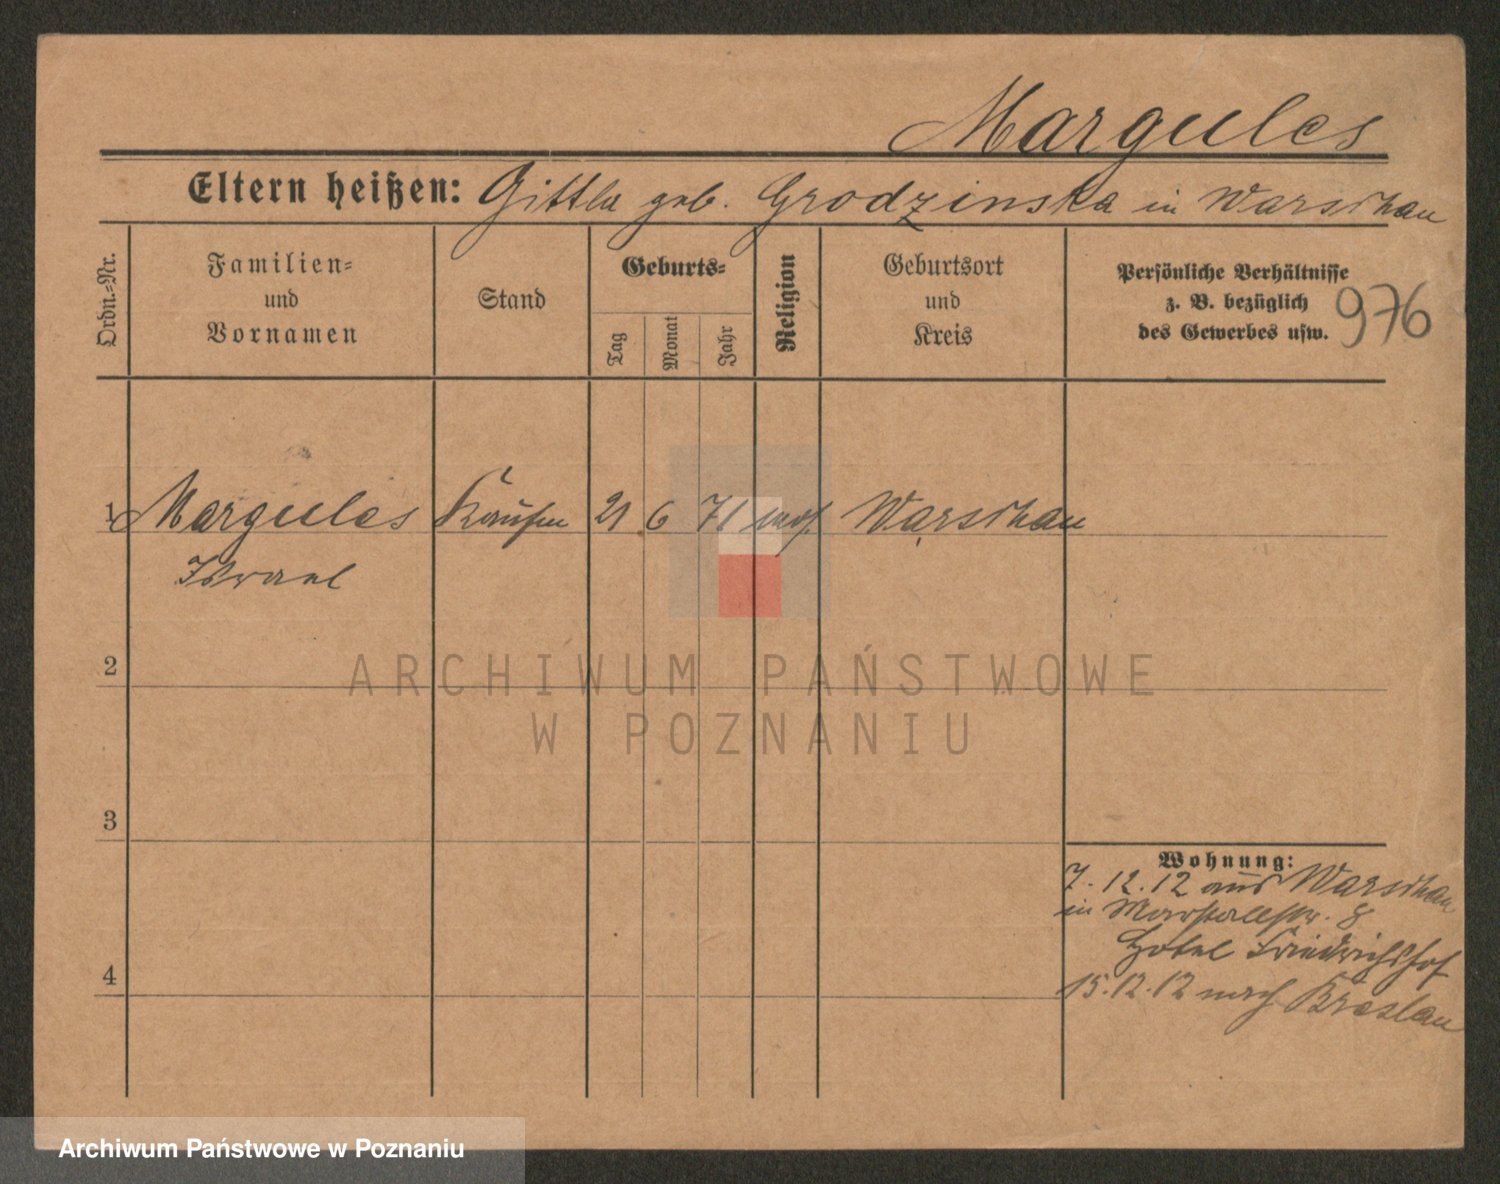 Margules
Eltern heißen: Gittla geb. Grodzinska in Warschau
Ordn.-Nr.
Familien-
und
Vornamen
Stand
Geburts-
Tag
Monat
Jahr
Religion
Geburtsort
und
Kreis
Persönliche Verhältnisse
z. B. bezüglich
des Gewerbes usw.
976
1 Margules Kaufm 21 6 71 mos. Warschau
Israel
2
ARCHIWUM PAŃSTWOWE
W POZNANIU
3
Wohnung:
7.12.12 aus Warschau
in Marstallstr. 8
Hotel Friedrichshof
4
15.12.12 nach Breslau
Archiwum Państwowe w Poznaniu